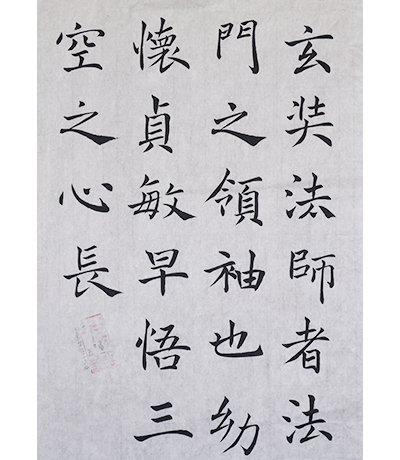 玄奘法師者法
門之領袖也幼
懷貞敏早悟三
空之心長